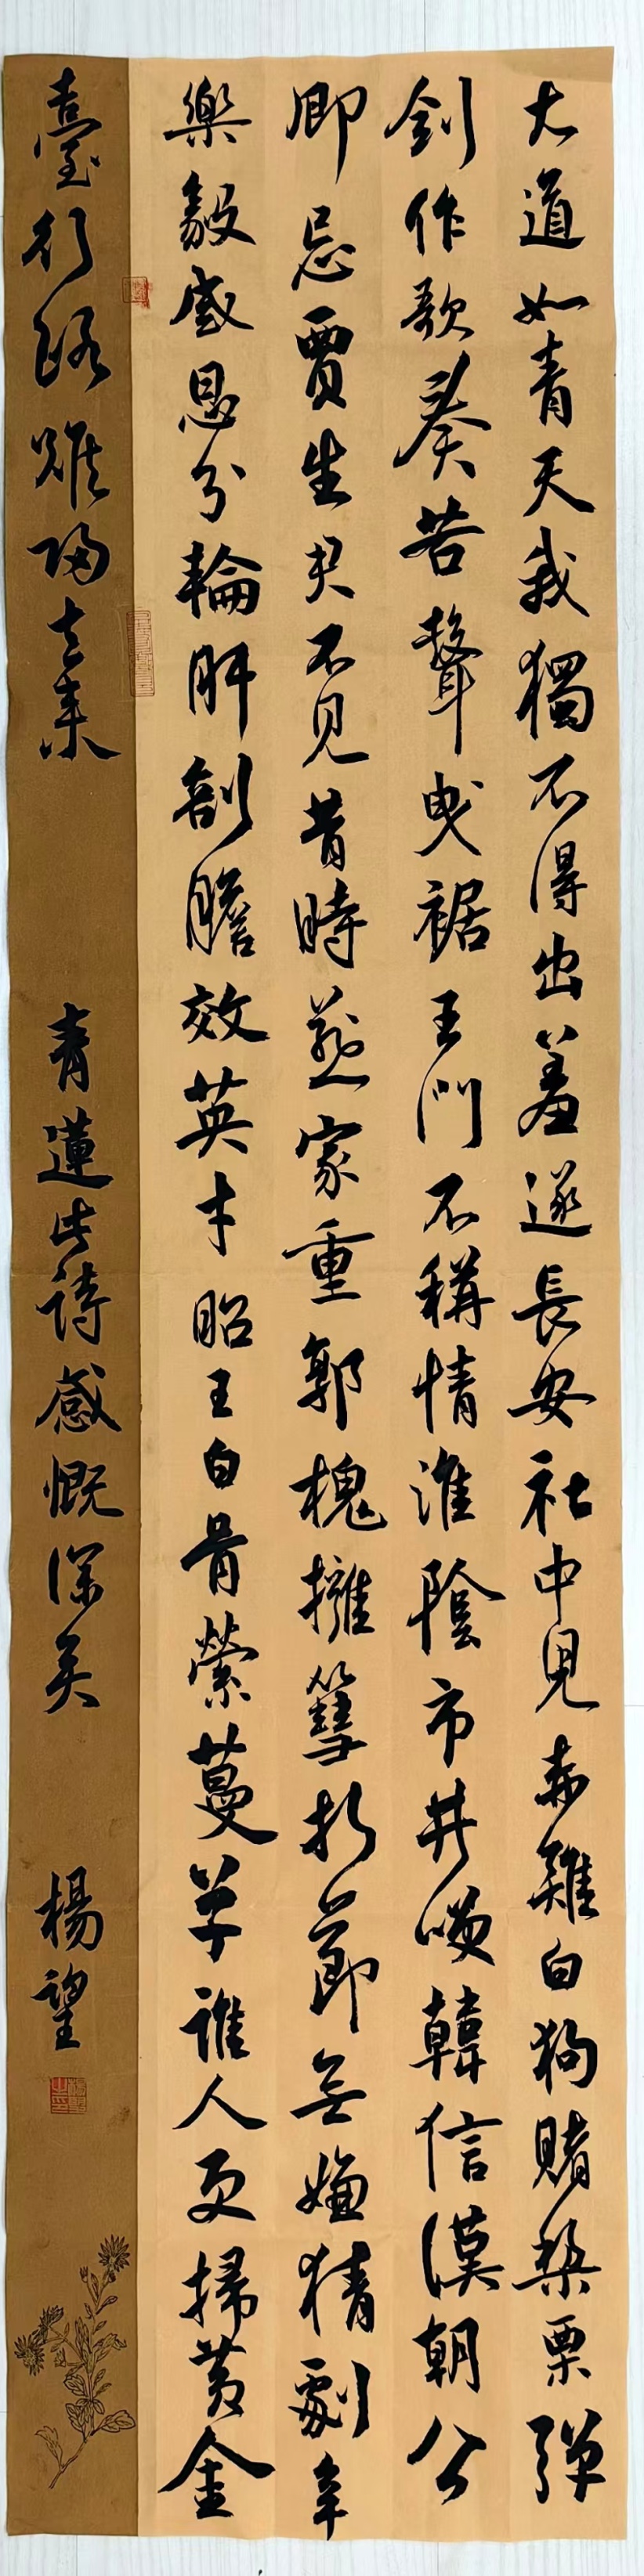 大道如青天我獨不得出羞逐長安社中兒赤雞白狗賭梨栗彈
劍作歌奏苦聲曳裾王門不稱情淮陰市井咲韓信漢朝公
卿忌賈生君不見昔時燕家重郭槐擁篲折節無嫌猜劇辛
樂毅感恩分輪肝剖膽效英才昭王白骨縈蔓草誰人更掃黃金
臺行路難歸去來 青蓮此詩感慨深矣 楊望